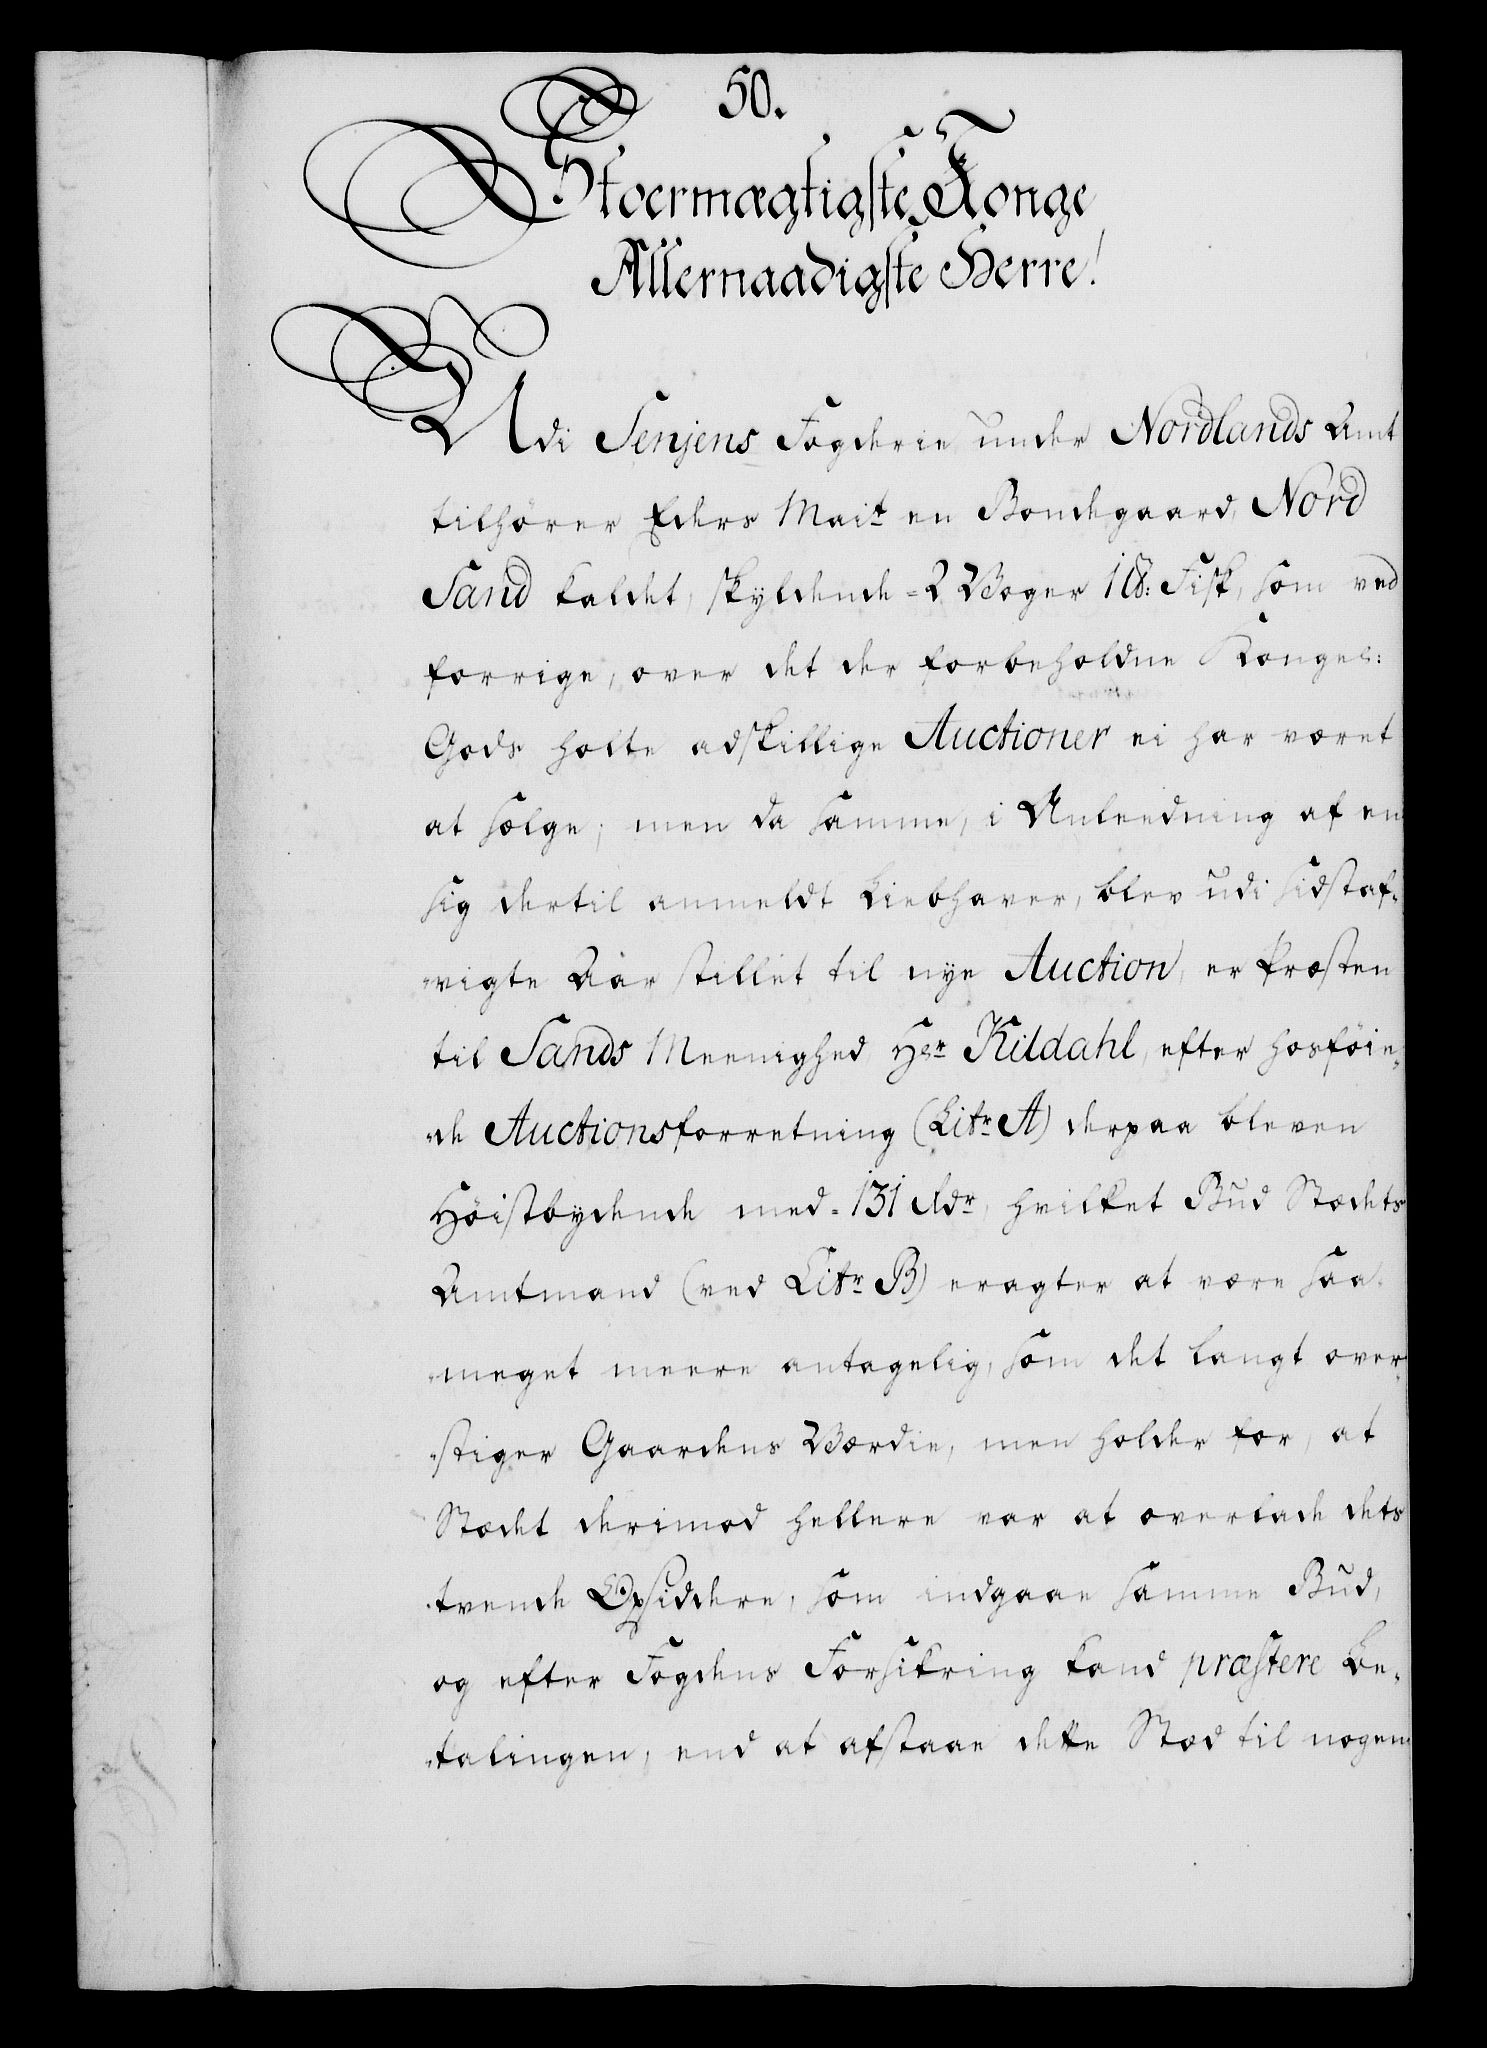 50.
Stoermægtigste Konge
Allernaadigste Herre!
Udi Senjens Fogderie under Nordlands Amt
tilhører Eders Mait en Bondegaard, Nord
Sand kaldet, skyldende = 2 Woger 1 ℔: Fisk, som ved
forrige, over det der forbeholdne Kongel:
Gods holte adskillige Auctioner ei har været
at sælge; men da samme, i Anleedning af en
sig dertil anmeldt Liebhaver, blev udi sidstaf-
-vigte Aar stillet til nye Auction, er Præsten
til Sands Meenighed Hr Kildahl, efter hosføien-
-de Auctionsforretning (Litr A) derpaa bleven
Høistbydende med = 131 Rdr, hvilket Bud Stædets
Amtmand (ved Litr B) eragter at være saa
-meget meere antagelig, som det langt over-
-stiger Gaardens Værdie, men holder for, at
Stædet derimod hellere var at overlade dets
tvende Opsiddere, som indgaae samme Bud,
og efter Fogdens Forsikring kand præstere Be-
-talingen, end at afstaae dette Stæd til nogen